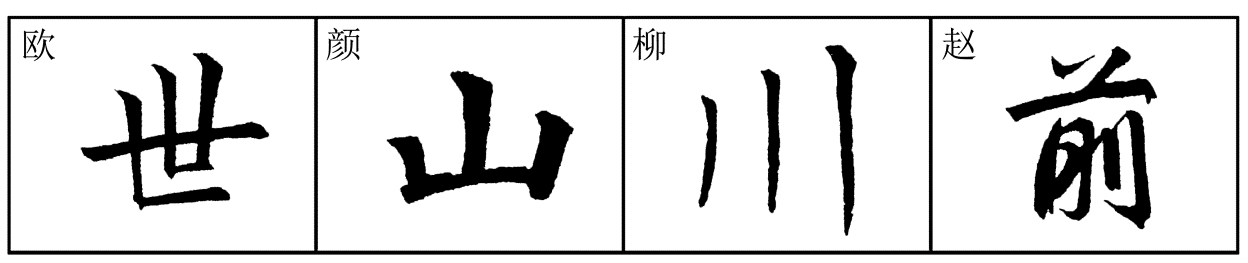 欧 世
颜 山
柳 川
赵 前